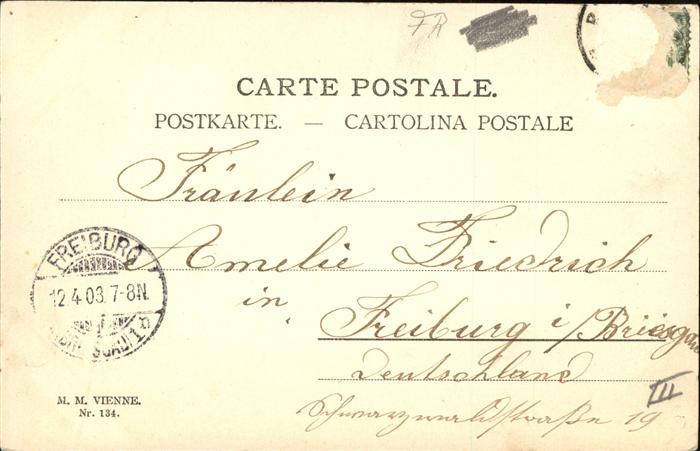 FR
CARTE POSTALE.
POSTKARTE. — CARTOLINA POSTALE
Fräulein
Amelie Friedrich
in
Freiburg i/Breisgau
Deutschland
Schwarzwaldstraße 19
III
FREIBURG
12.4.03.7-8N.
M. M. VIENNE.
Nr. 134.